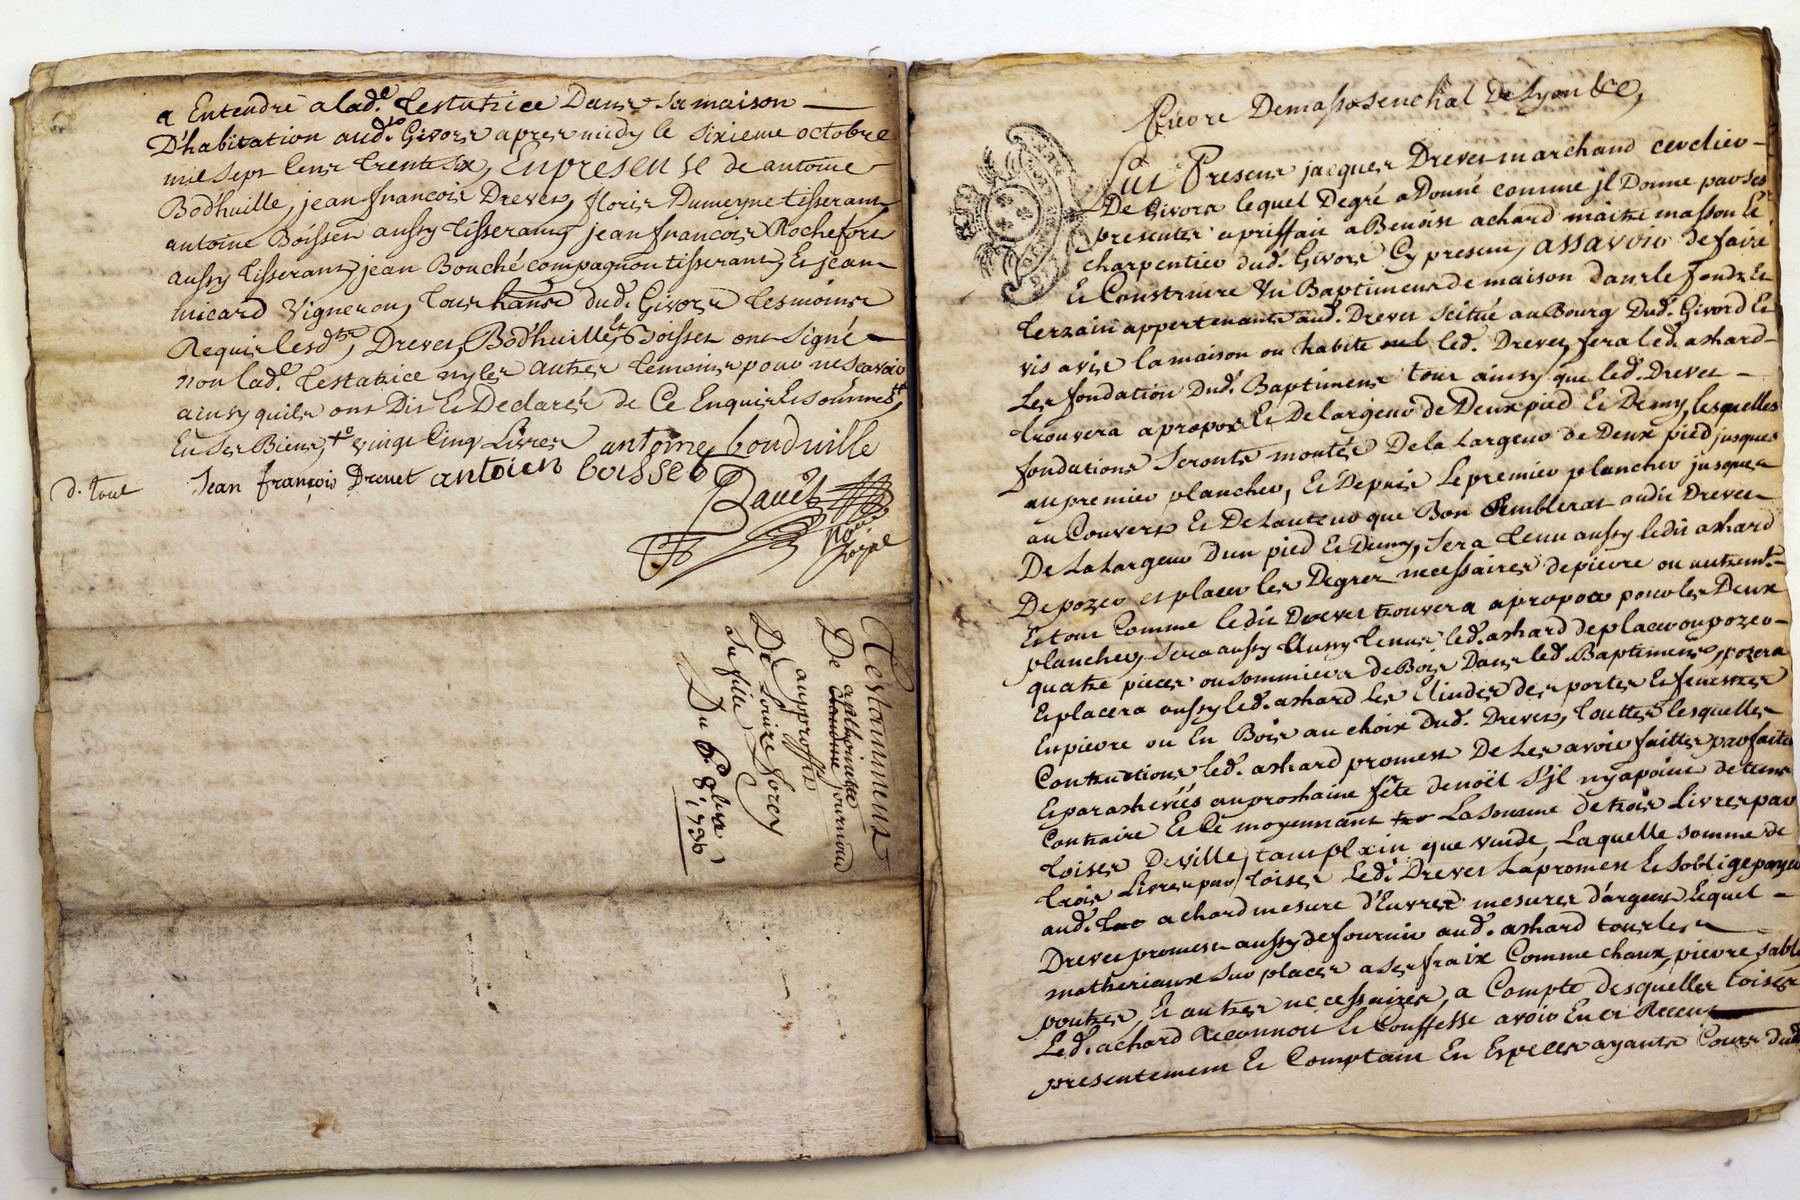 a Entendre a lad.e Testatrice Dans sa maison
D'habitation aud.to Givors apres midy le sixieme octobre
mil sept cens trente six, En presense de antoine
Bodhuille, jean francois Drevet, floris Dumeyne tisserant
antoine Boisset aussy tisserant, jean francois Rochefort
aussy tisserant, jean Bouché compagnon tisserant, Et jean
micard Vigneron, tous dud. Givors tesmoins
Requis lesd., Drevet, Bodhuille, et Boisset ont signé
non lad.e testatrice ny les autres temoins pour ne scavoir
ainsy quils ont Dit Et Declarés de Ce Enquis Et sommés
En ses Biens, vingt Cinq Livres antoine bouduille
d. tout
Jean françois Drevet antoien boisset
Bauët
No.re
Royal
Testamment
De anthoinette
Claudine journoud
au proffit
De Louise Florey
sa fille
Du 6 8bre
1736
Pierre Demasso Senchal De Lyon &ce,
Fut Present jacques Drevet marchand cerclier
De Givors lequel Degré a Donné comme jl Donne par ses
presentes a priffait a Benoist achard maitre masson Et
charpentier dud. Givors Cy present, assavoir de faire
Et Construire Un Baptiment de maison dans le fondz Et
terrain appertenants aud. Drevet scitué au Bourg Dud. Givord Et
vis a vis la maison ou habite led. Drevet, fera led. ashard
Les fondation Dud. Baptiment tout ainsy que led. Drevet
trouvera a propos Et De largeur de Deux pied Et Demy, lesquelles
fondations seronts montés De la Largeur de Deux pied jusques
au premier plancher, Et Depuis Le premier plancher jusques
au Couvert Et De hauteur que Bon semblerat audit Drevet
De La Largeur D'un pied Et Demy, sera tenu aussy ledit ashard
De pozer et placer les Degrez necessaires de pierre ou autrem.t
Et tout Comme ledit Drevet trouvera a propos pour les Deux
plancher, sera aussy tenus led. ashard de placer ou pozer
quatre pieces ou sommiers de Bois Dans led. Baptiment, pozera
Et placera aussy led. ashard Les des portes Et fenestres
En pierre ou En Bois au choix Dud. Drevet, touttes lesquelles
Contructions led. ashard promest De Les avoir faittes parfaites
Et parashevées au proshaine fête de noël s'jl ny a point de tems
Contraire Et Ce moyennant La somme de trois Livres par
toises De ville, tant plein que vuide, Laquelle somme de
trois Livres par toises Led. Drevet La promest Et s'oblige payer
aud. achard mesure d'Euvres mesures d'argent Lequel
Drevet promest aussy de fournir aud. ashard tous les
matheriaux sur places a ses fraix Comme chaux, pierre, sable
poutres, Et autres necessaires, a Compte desquelles toises
Led. achard Reconnoit Et Conffesse avoir Eu et Receu
presentement Et Comptant En Especes ayants Cours dud